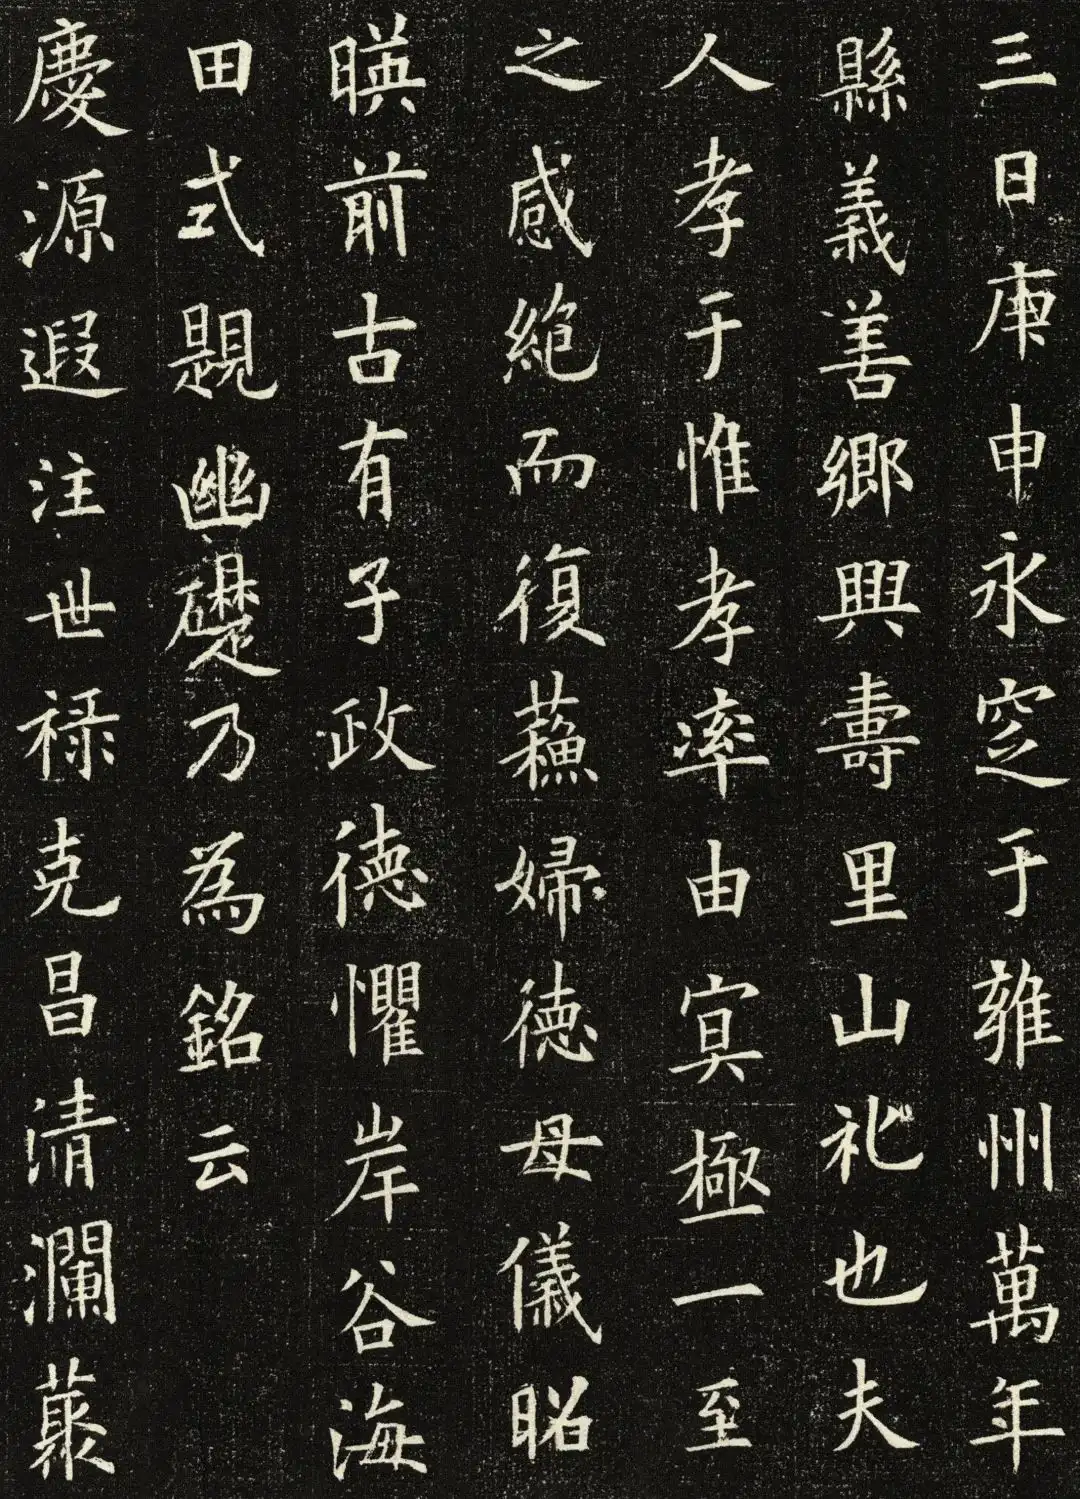 三日庚申永窆于雍州萬年
縣義善鄉興壽里山礼也夫
人孝于惟孝率由㝠極一至
之感絕而復蘓婦德母儀昭
暎前古有子政德懼岸谷海
田式題幽礎乃為銘云
慶源遐注世祿克昌清瀾藂